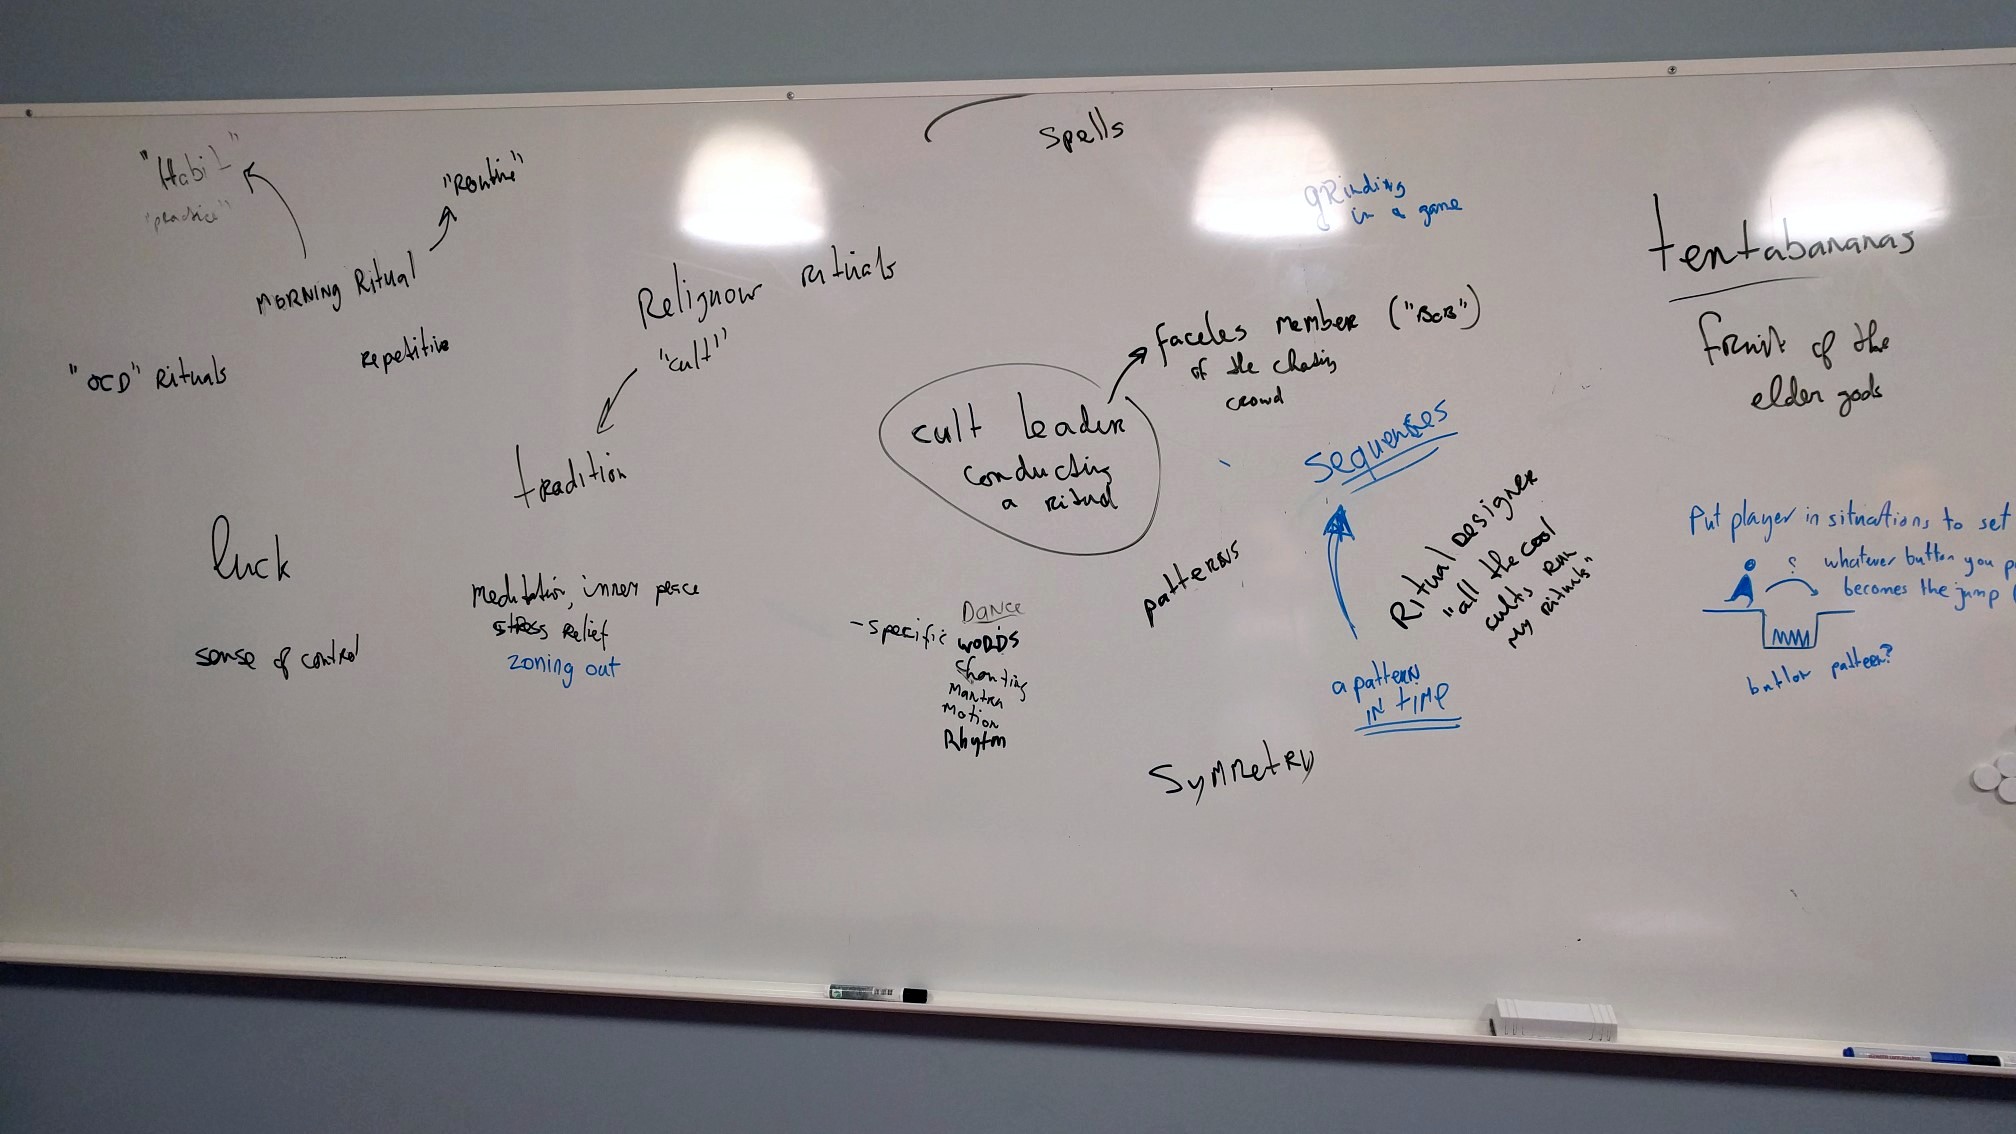 "Habit"
"practice"
"Routine"
MORNING Ritual
repetitive
"OCD" Rituals
Religious rituals
"cult"
tradition
luck
sense of control
meditation, inner peace
stress relief
zoning out
spells
grinding
in a game
faceles member ("BOB")
of the
crowd
cult leader
conducting
a ritual
sequenses
a pattern
IN tiMe
patterns
Ritual Designer
"all the cool
cults run
my rituals"
Dance
- specific words
Chanting
Mantra
Motion
Rhytm
Symmetry
tentabananas
fruit of the
elder gods
Put player in situations to set
? whatever button you p
becomes the jump (
button pattern?